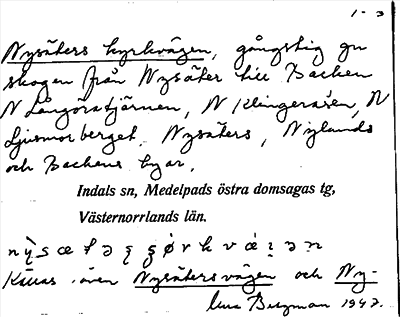 1-3
Nysäters kyrkvägen, gångstig gn
skogen från Nysäter till Backen
N Långörstjärnen, N Klingeråsen, N
Ljusmorberget. Nysäters, Nylands
och Backens byar.
Indals sn, Medelpads östra domsagas tg,
Västernorrlands län.
Kallas även Nysätersvägen och Ny-
Bergman 1947.